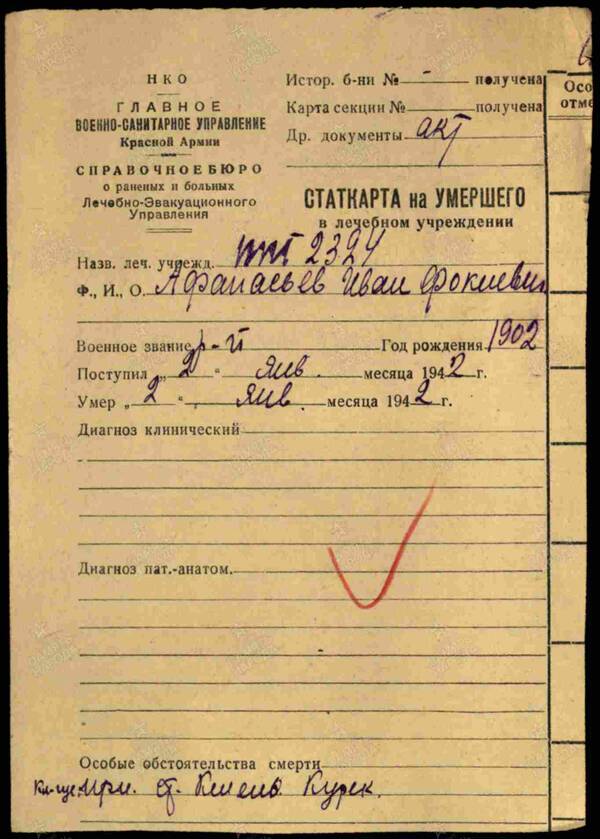 НКО
ГЛАВНОЕ
ВОЕННО-САНИТАРНОЕ УПРАВЛЕНИЕ
Красной Армии
СПРАВОЧНОЕ БЮРО
о раненых и больных
Лечебно-Эвакуационного
Управления
Истор. б-ни № - получена
Карта секции № получена
Др. документы акт
Осо
отме
СТАТКАРТА на УМЕРШЕГО
в лечебном учреждении
Назв. леч. учрежд. ппг 2324
Ф., И., О. Афанасьев Иван Фокиевич
Военное звание р-й Год рождения 1902
Поступил „ 2 “ янв. месяца 1942 г.
Умер „ 2 “ янв. месяца 1942 г.
Диагноз клинический
Диагноз пат.-анатом.
Особые обстоятельства смерти
Кл-ще при ст. Курск.